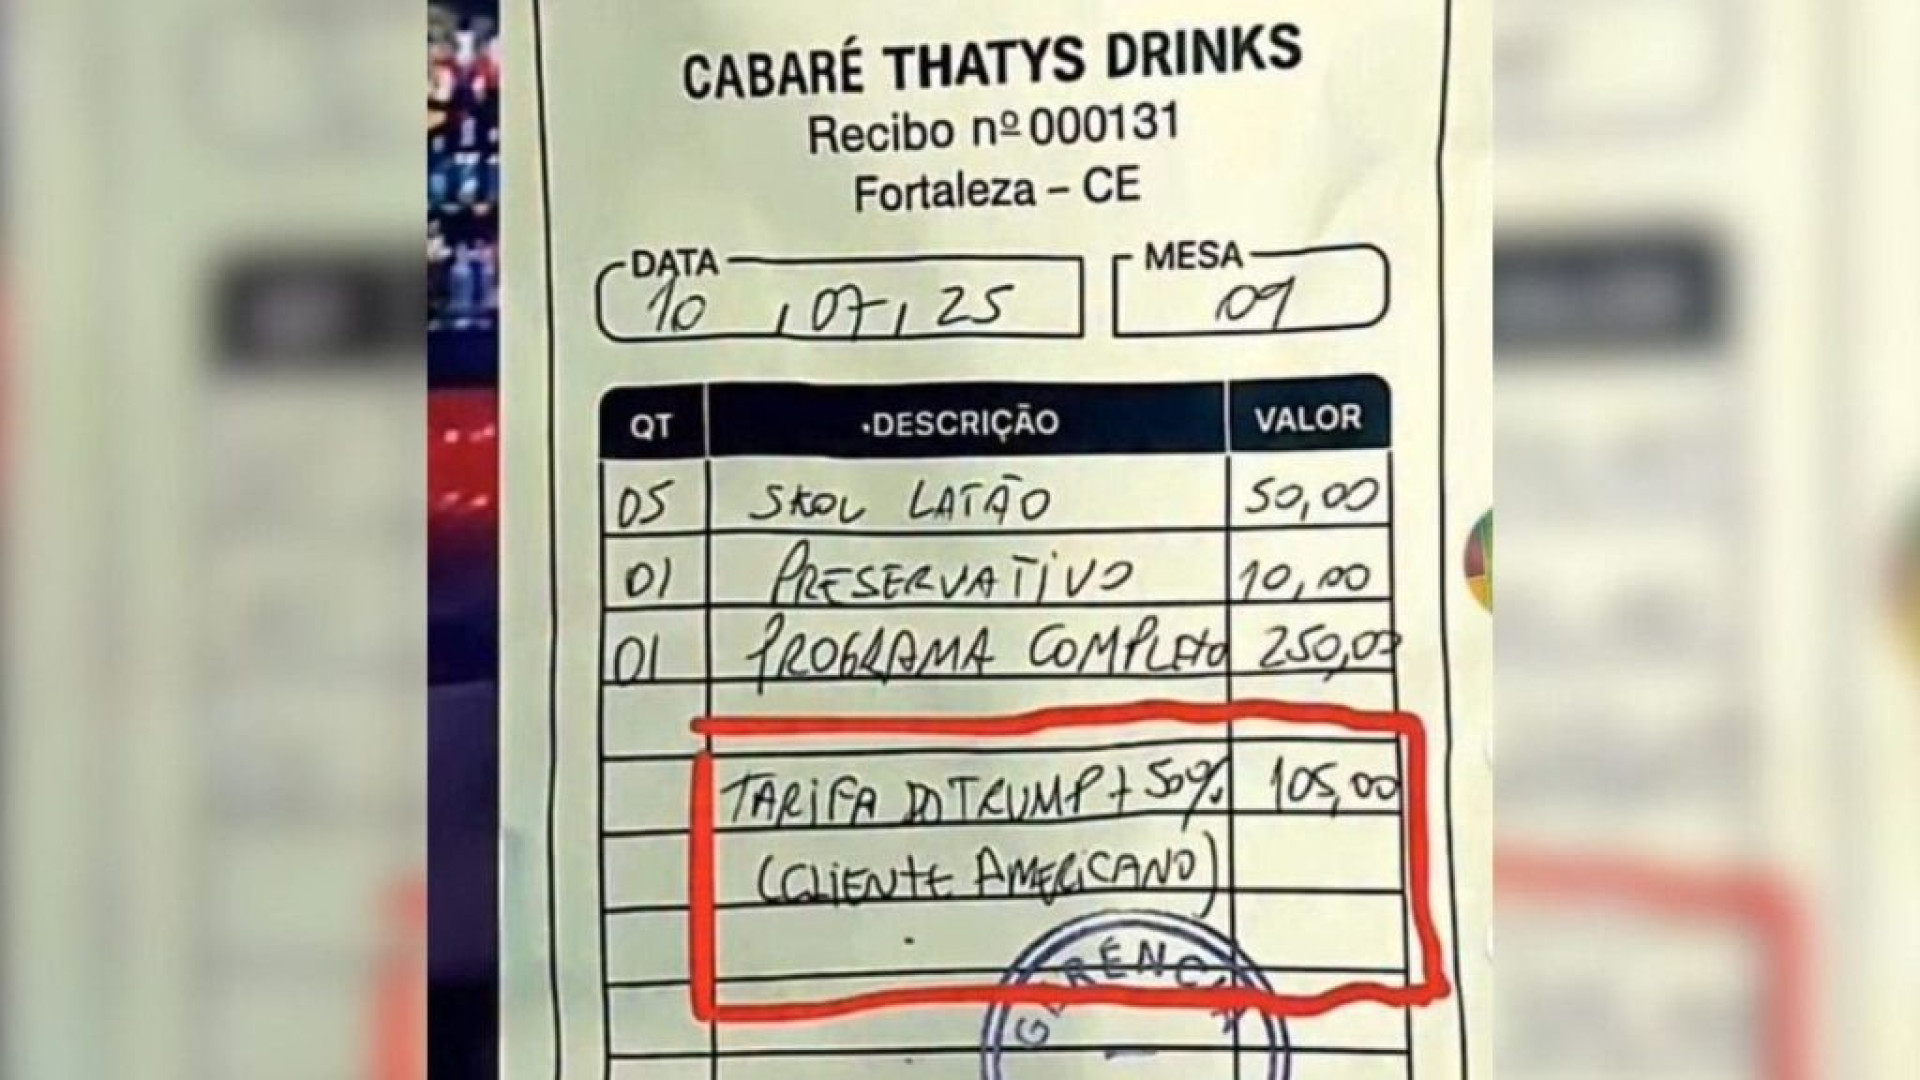 CABARÉ THATYS DRINKS
Recibo nº 000131
Fortaleza – CE
DATA 10 / 07 / 25 MESA 09
QT DESCRIÇÃO VALOR
05 SKOL LATÃO 50,00
01 PRESERVATIVO 10,00
01 PROGRAMA COMPLETO 250,00
TARIFA DO TRUMP + 50% 105,00
(CLIENTE AMERICANO)
GERÊNCIA